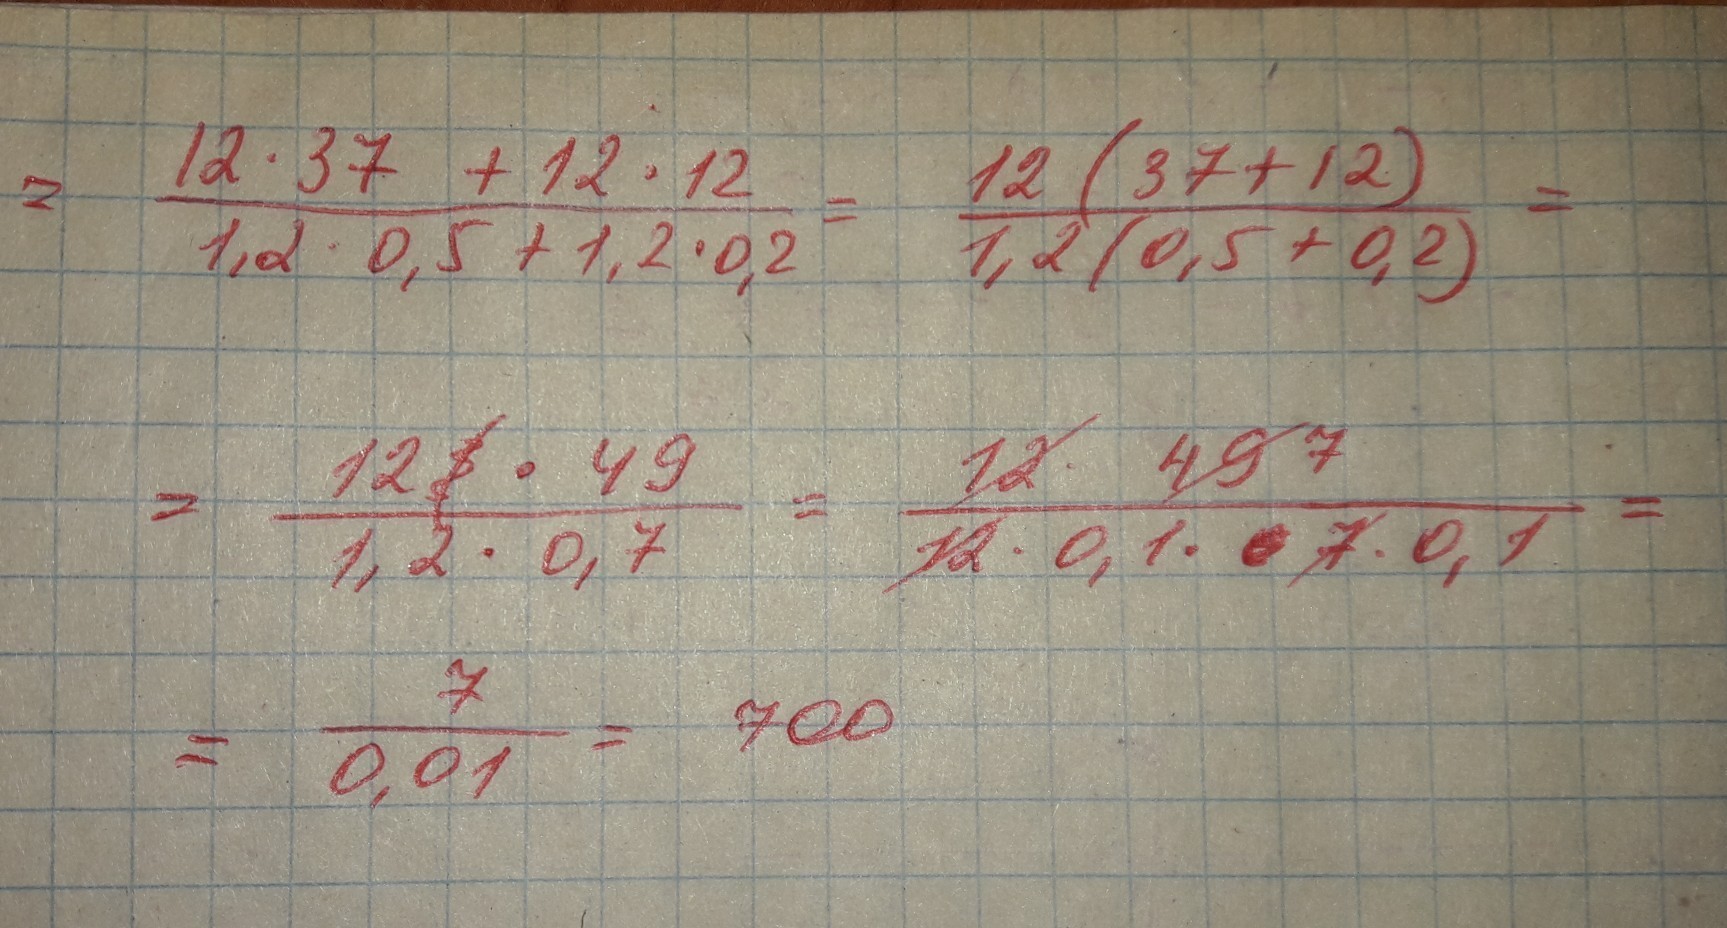 = (12·37 + 12·12)/(1,2·0,5 + 1,2·0,2) = (12(37+12))/(1,2(0,5+0,2)) =
= (12·49)/(1,2·0,7) = (12·49 7)/(12·0,1·7·0,1) =
= 7/0,01 = 700